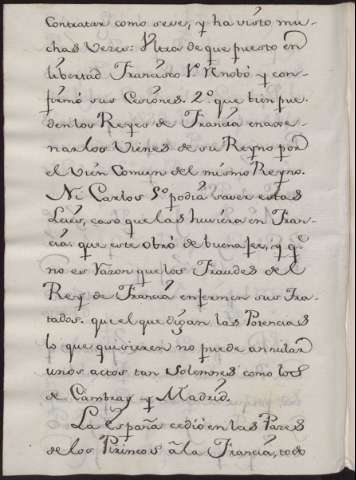 Contratar como seve, y ha visto mu-
chas Vezes: Ultra de que puesto en
libertad Francisco 1º renobó y con-
firmó sus Cesiones. 2º que bien pue-
den los Reyes de Francia enage-
nar los Vienes de su Reyno por
el Vien Comun del mismo Reyno.
Ni Carlos 5º podia saver estas
Leies, caso que las huviera en Fran-
cia, que este obró de buena fee, y q.e
no es razon que los Fraudes de el
Rey de Francia enfermen sus Tra-
tados. que el que digan las Potencias
lo que quisieren no puede annular
unos actos tan Solemnes como los
de Cambray y Madrid.
La España cedió en las Pazes
de los Pirineos â la Francia, todo